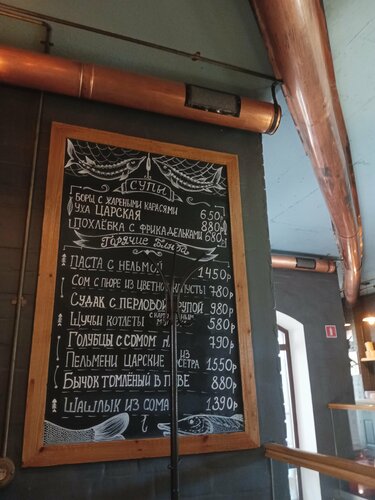 СУПЫ
БОРЩ С ЖАРЕНЫМИ КАРАСЯМИ 650
УХА ЦАРСКАЯ 880
ПОХЛЁБКА С ФРИКАДЕЛЬКАМИ 680
Горячие блюда
ПАСТА С НЕЛЬМОЙ 1450р
СОМ С ПЮРЕ ИЗ ЦВЕТНОЙ КАПУСТЫ 780р
СУДАК С ПЕРЛОВОЙ КРУПОЙ 980р
ЩУЧЬИ КОТЛЕТЫ С КАРТОФЕЛЬНЫМ 580р
ГОЛУБЦЫ С СОМОМ 790р
ПЕЛЬМЕНИ ЦАРСКИЕ ИЗ ОСЕТРА 1550р
БЫЧОК ТОМЛЁНЫЙ В ПИВЕ 880р
ШАШЛЫК ИЗ СОМА 1390р